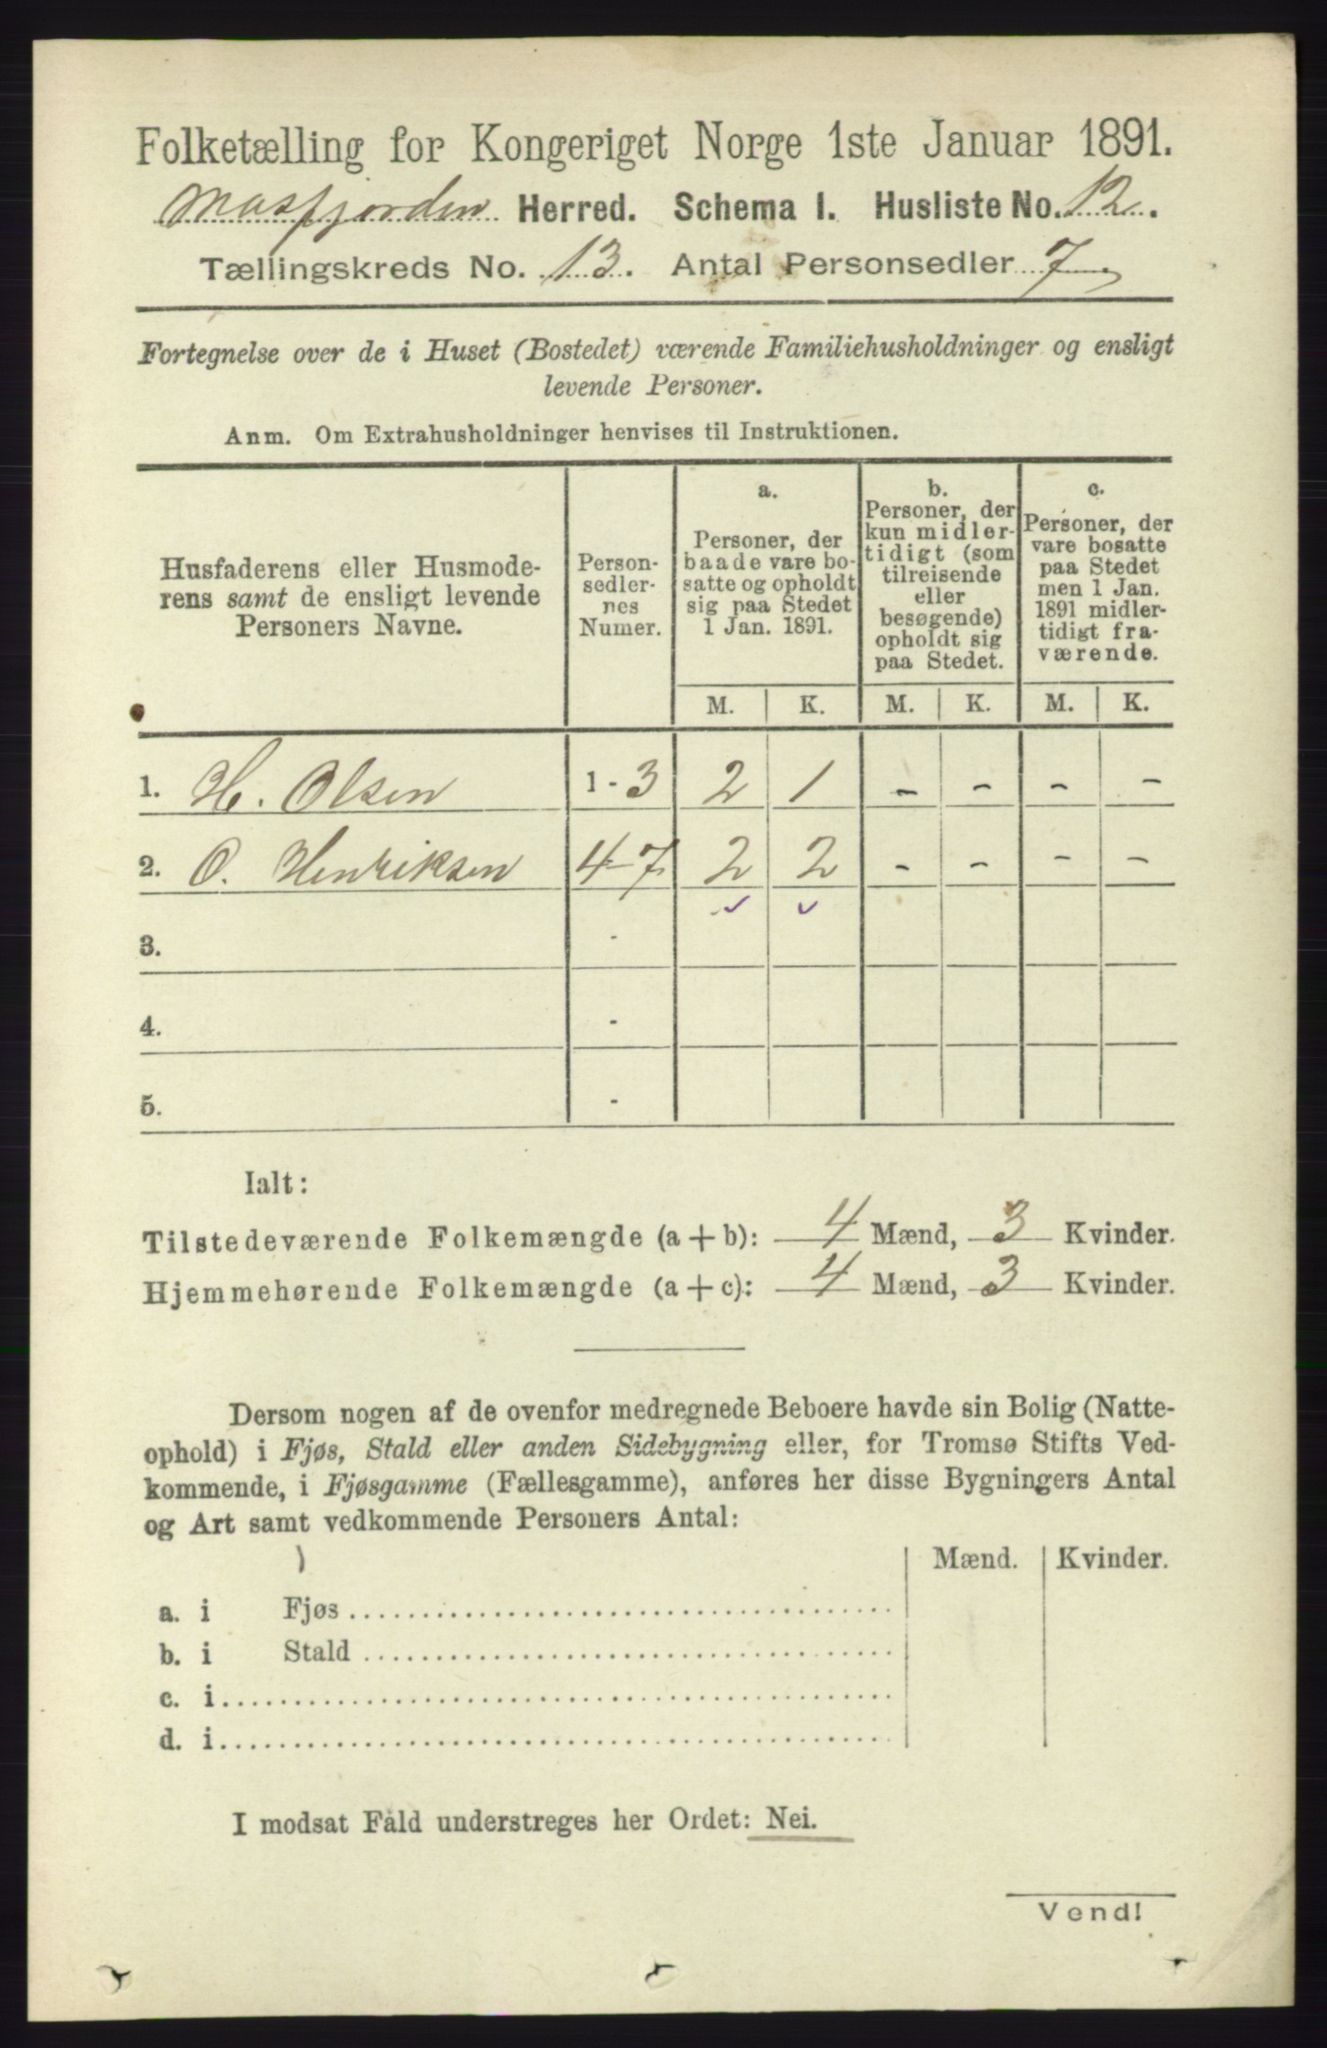 Folketælling for Kongeriget Norge 1ste Januar 1891.
Masfjorden Herred. Schema I. Husliste No. 12.
Tællingskreds No. 13. Antal Personsedler 7
Fortegnelse over de i Huset (Bostedet) værende Familiehusholdninger og ensligt
levende Personer.
Anm. Om Extrahusholdninger henvises til Instruktionen.
Husfaderens eller Husmode-
rens samt de ensligt levende
Personers Navne.
Person-
sedler-
nes
Numer.
a.
Personer, der
baade vare bo-
satte og opholdt
sig paa Stedet
1 Jan. 1891.
b.
Personer, der
kun midler-
tidigt (som
tilreisende
eller
besøgende)
opholdt sig
paa Stedet.
c.
Personer, der
vare bosatte
paa Stedet
men 1 Jan.
1891 midler-
tidigt fra-
værende.
M. K. M. K. M. K.
1. H. Olsen 1 - 3 2 1 - - - -
2. O. Henriksen 4-7 2 2 - - - -
3. -
4. -
5. -
Ialt:
Tilstedeværende Folkemængde (a + b): 4 Mænd, 3 Kvinder.
Hjemmehørende Folkemængde (a + c): 4 Mænd, 3 Kvinder.
Dersom nogen af de ovenfor medregnede Beboere havde sin Bolig (Natte-
ophold) i Fjøs, Stald eller anden Sidebygning eller, for Tromsø Stifts Ved-
kommende, i Fjøsgamme (Fællesgamme), anføres her disse Bygningers Antal
og Art samt vedkommende Personers Antal:
Mænd. Kvinder.
a. i Fjøs
b. i Stald
c. i
d. i
I modsat Fald understreges her Ordet: Nei.
Vend!